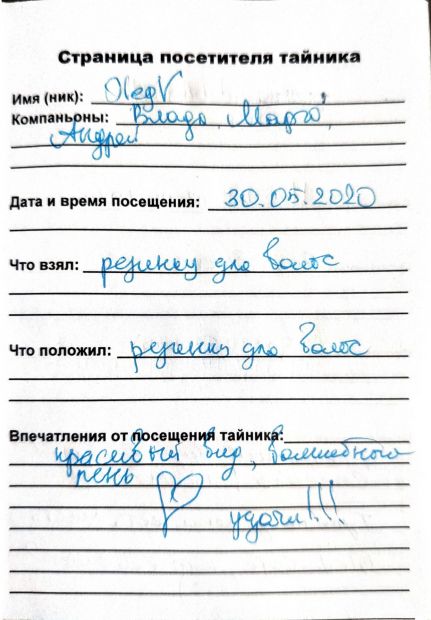 Страница посетителя тайника
Имя (ник): OlegV
Компаньоны: Влада, Марго,
Андрей
Дата и время посещения: 30.05.2020
Что взял: резинку для волос
Что положил: резинку для волос
Впечатления от посещения тайника:
красивый вид, волшебного
пень
удачи!!!